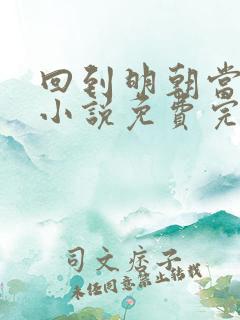 回到明朝當
小說免費完
司文痞子
未经同意禁止转载